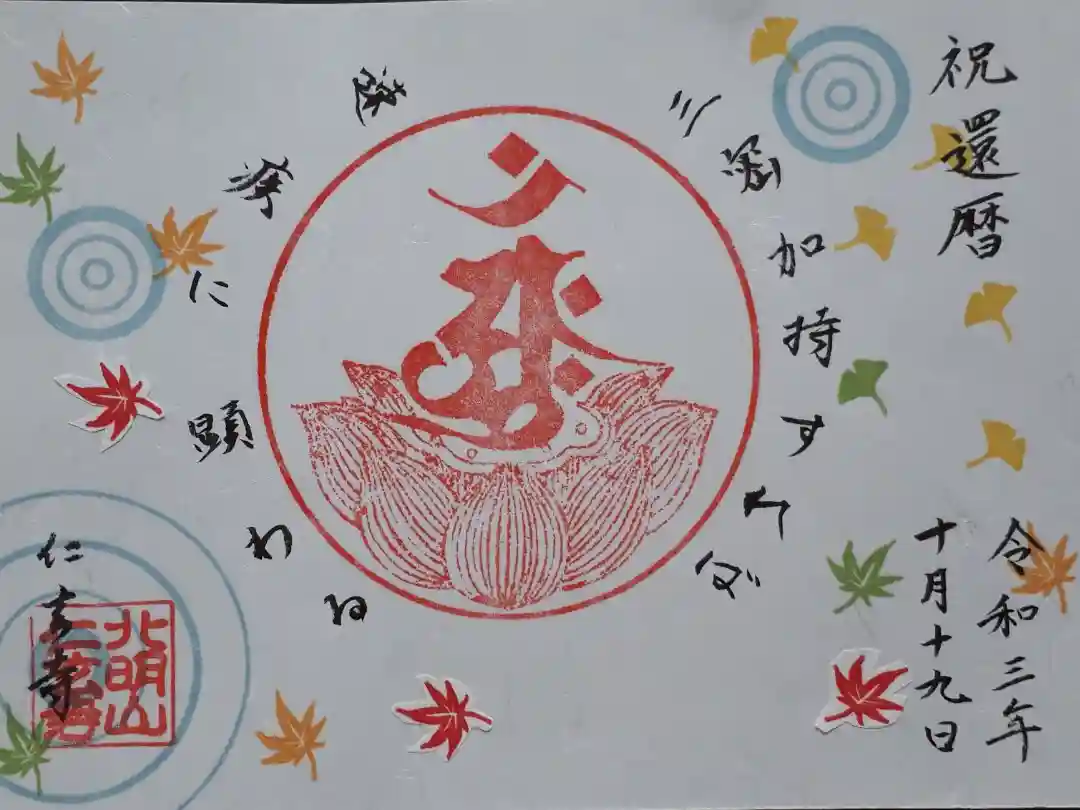 祝還暦
三密加持すれば
速疾に顕わる
令和三年
十月十九日
仁玄寺
北明山